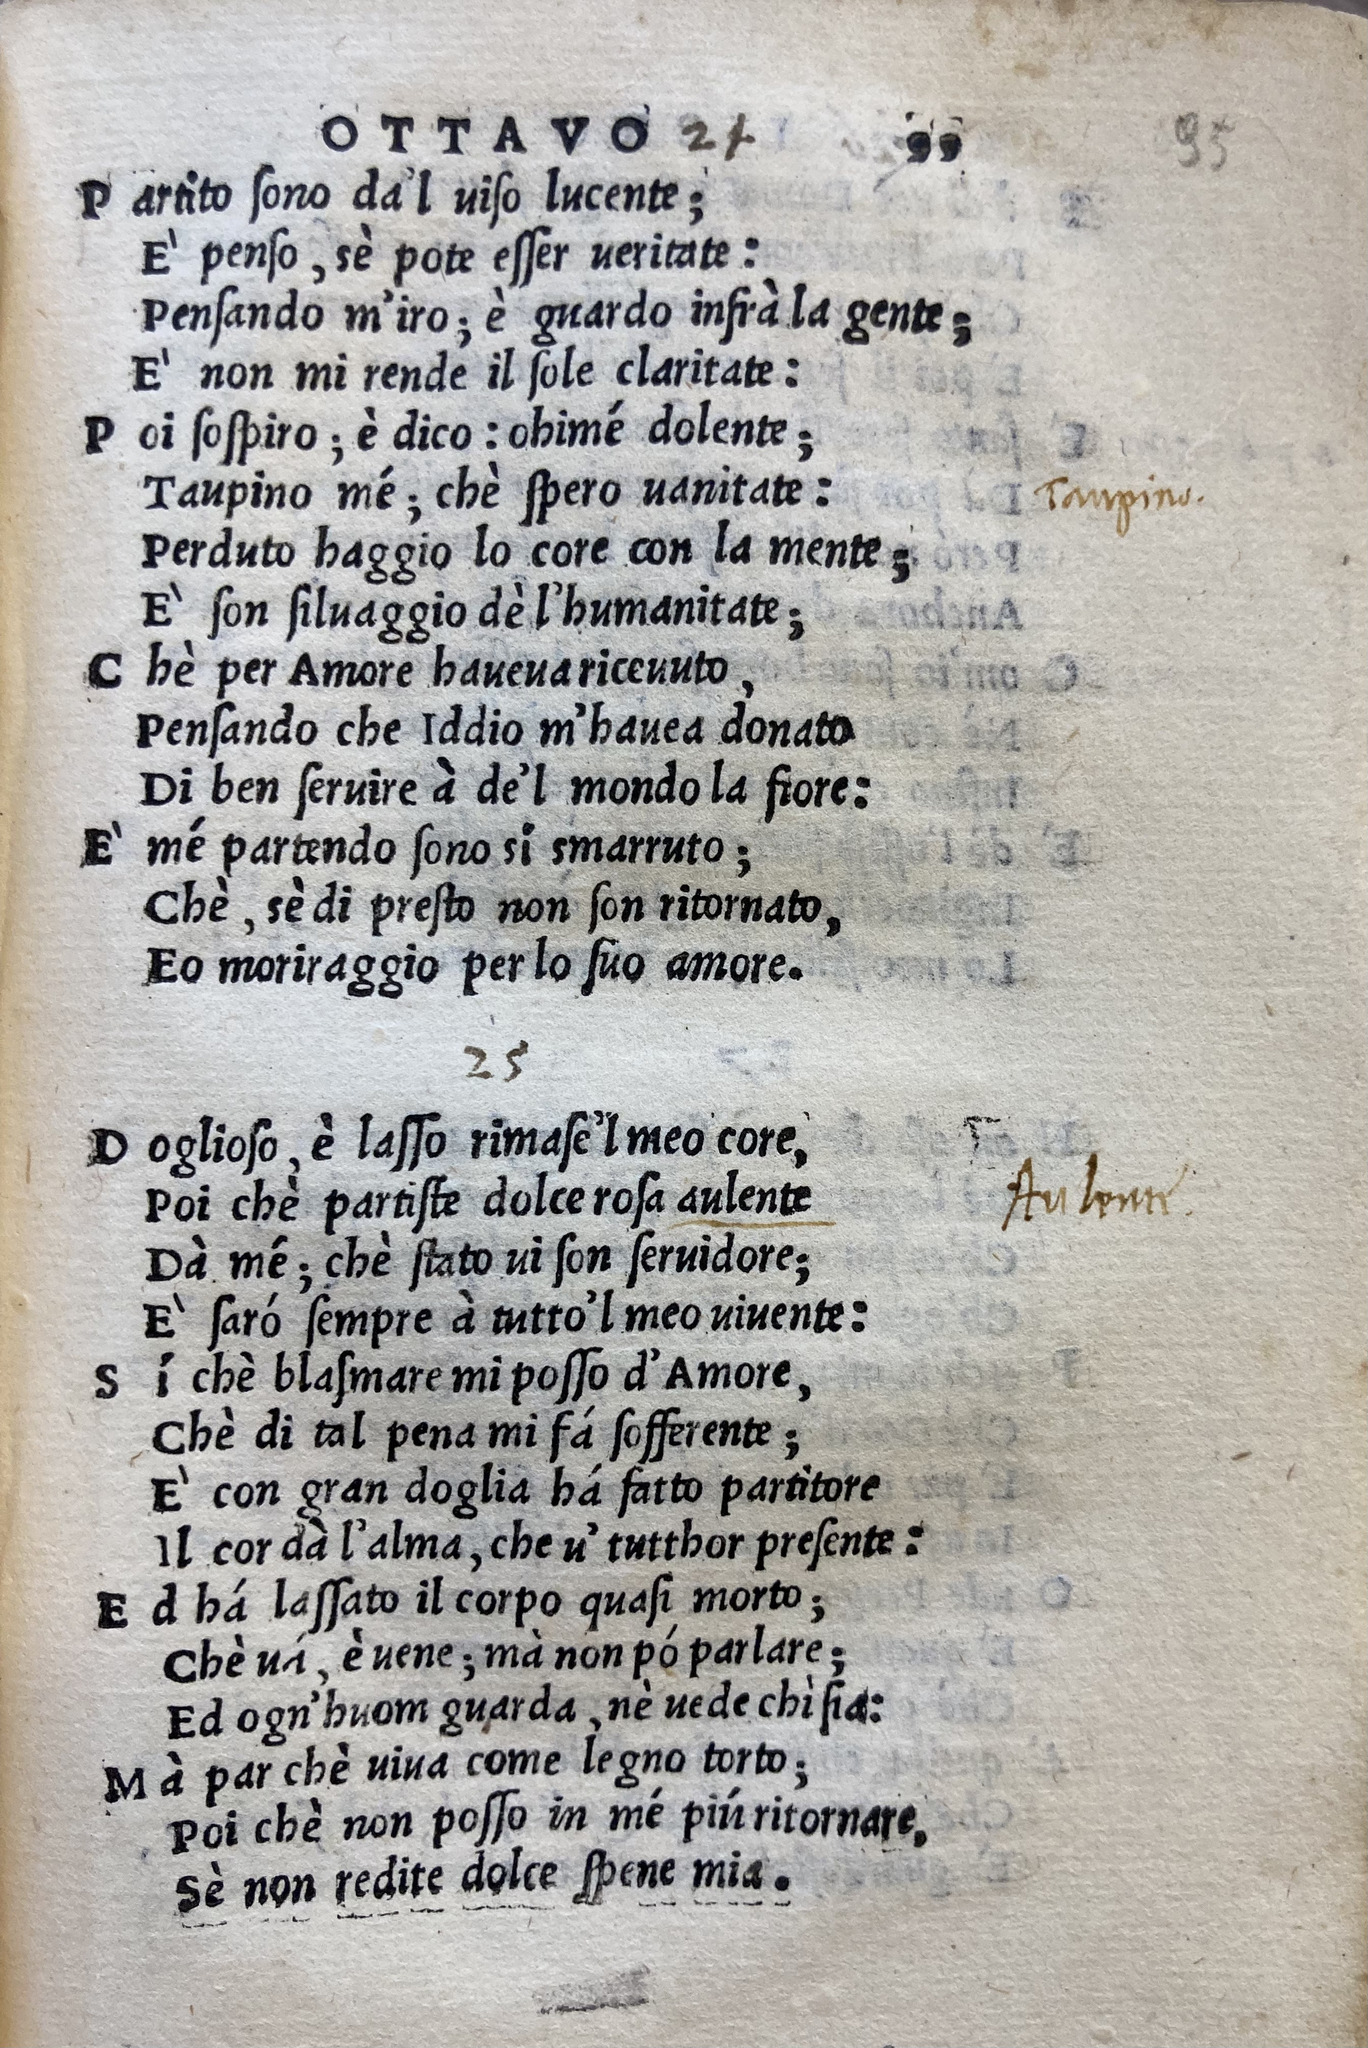 OTTAVO 24 99 95
Partito ſono da'l uiſo lucente;
E' penſo, sè pote eſſer ueritate:
Penſando m'iro; è guardo infrà la gente;
E' non mi rende il ſole claritate:
Poi ſoſpiro; è dico: ohimé dolente;
Taupino mé; chè ſpero uanitate: Taupino.
Perduto haggio lo core con la mente;
E' ſon ſiluaggio dè l'humanitate;
Chè per Amore haueua riceuuto,
Penſando che Iddio m'hauea donato
Di ben ſeruire à de'l mondo la fiore:
E' mé partendo ſono sí smarruto;
Chè, sè di preſto non ſon ritornato,
Eo moriraggio per lo ſuo amore.
25
Doglioſo, è laſſo rimaſe'l meo core,
Poi chè partiſte dolce roſa aulente Aulente.
Dà mé; chè ſtato ui ſon ſeruidore;
E' ſaró ſempre à tutto'l meo uiuente:
Sí chè blaſmare mi poſſo d'Amore,
Chè di tal pena mi fá ſofferente;
E' con gran doglia há fatto partitore
Il cor dà l'alma, che u' tutthor preſente:
Ed há laſſato il corpo quaſi morto;
Chè uá, è uene; mà non pó parlare;
Ed ogn'huom guarda, nè uede chì ſia:
Mà par chè uiua come legno torto;
Poi chè non poſſo in mé piú ritornare,
Sè non redite dolce ſpene mia.